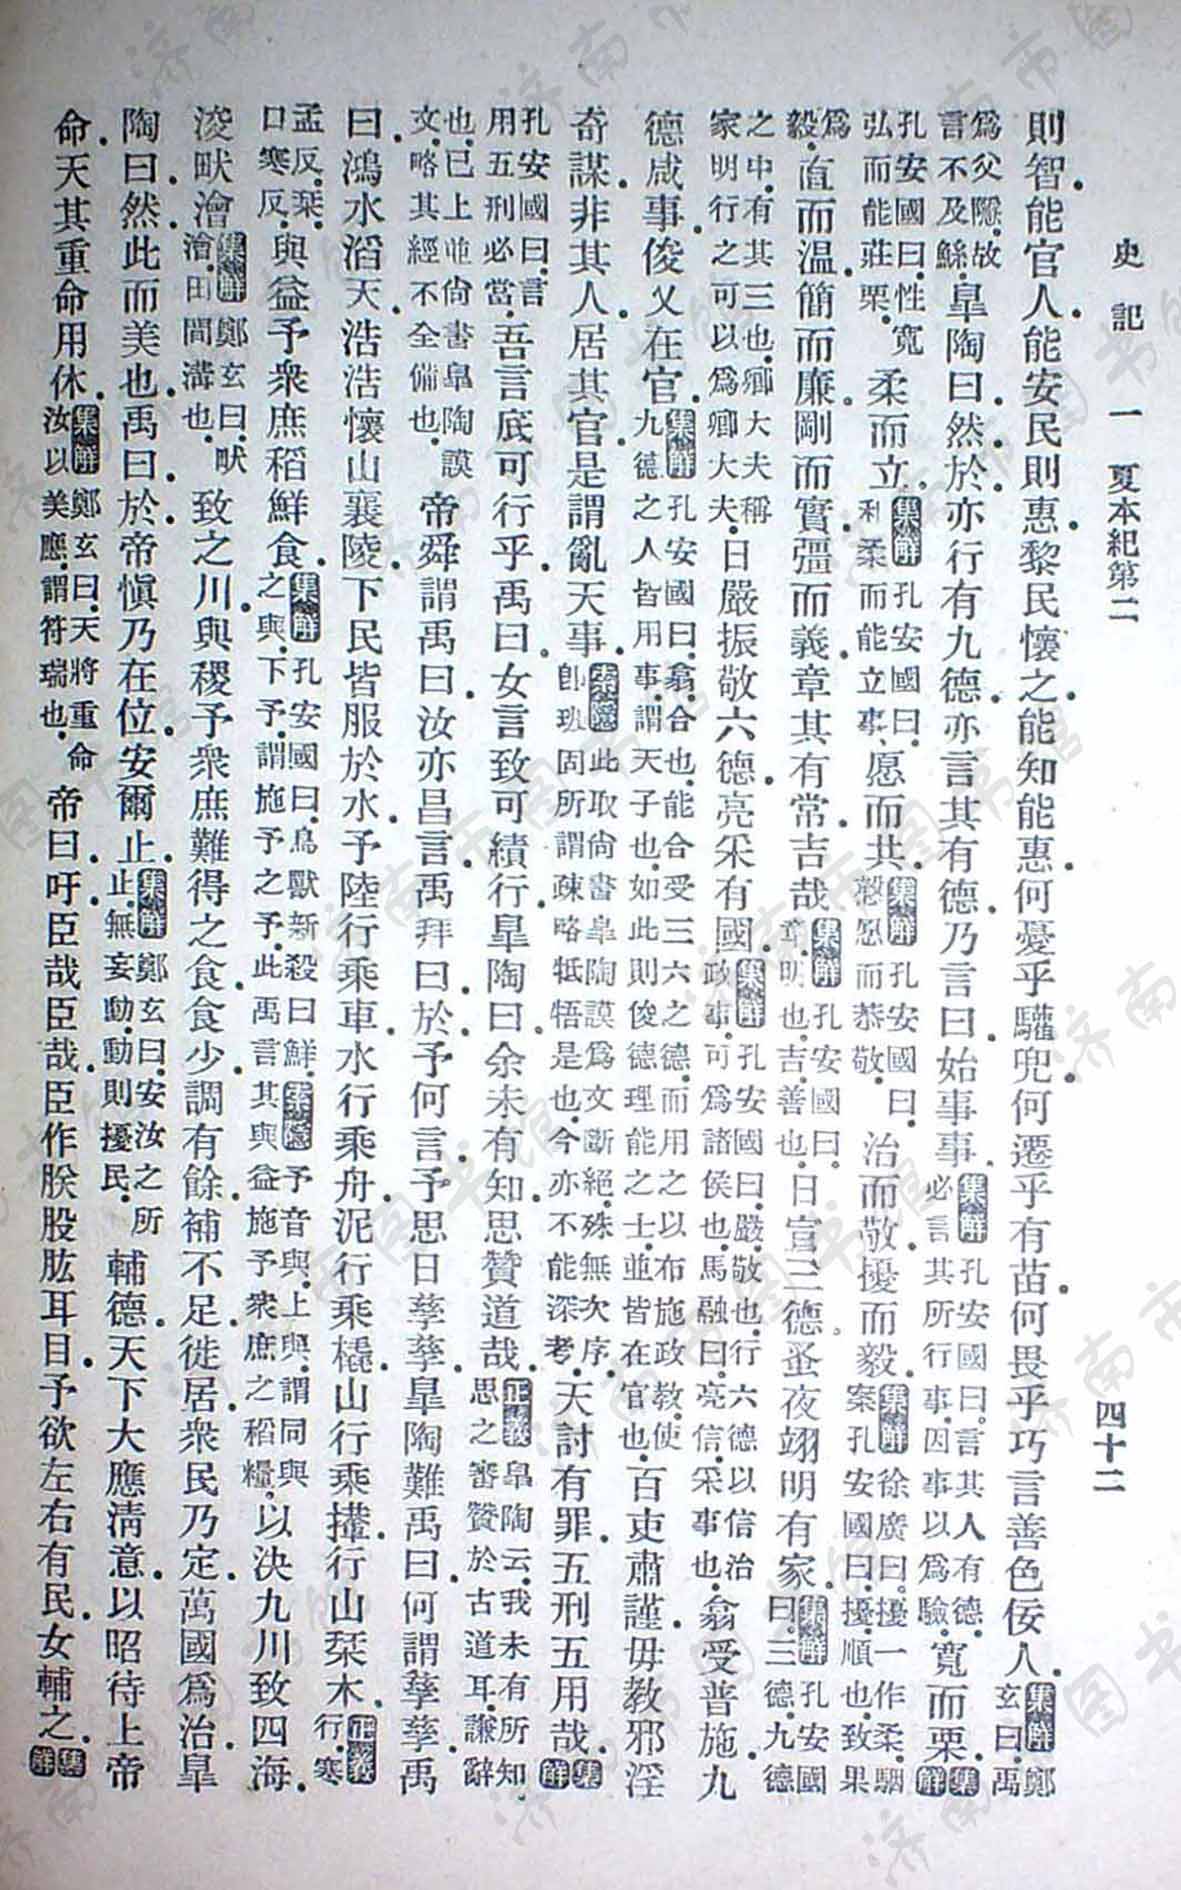 史記一 夏本紀第二 四十二
則智．能官人．能安民則惠．黎民懷之．能知能惠．何憂乎驩兜．何遷乎有苗．何畏乎巧言善色佞人．集解鄭玄曰．禹
爲父隱．故言不及鯀．皐陶曰．然．於．亦行有九德．亦言其有德．乃言曰．始事事．集解孔安國曰．言其人有德．必言其所行事．因事以爲驗．寬而栗．集解
孔安國曰．性寬弘而能莊栗．柔而立．集解孔安國曰．和柔而能立事．愿而共．集解孔安國曰．慤愿而恭敬．治而敬．擾而毅．集解徐廣曰．擾一作柔．駰案孔安國曰．擾．順也．致果
爲毅．直而溫．簡而廉．剛而實．彊而義．章其有常．吉哉．集解孔安國曰．章．明也．吉．善也．日宣三德．蚤夜翊明有家．集解孔安國曰．三德．九德
之中．有其三也．卿大夫稱家．明行之可以爲卿大夫．日嚴振敬六德．亮采有國．集解孔安國曰．嚴．敬也．行六德以信治政事．可爲諸侯也．馬融曰．亮．信．采．事也．翕受普施．九
德咸事．俊乂在官．集解孔安國曰．翕．合也．能合受三六之德．而用之以布施政教．使九德之人皆用事．謂天子也．如此則俊德理能之士．並皆在官也．百吏肅謹．毋教邪淫
奇謀．非其人．居其官．是謂亂天事．索隱此取尙書皐陶謨爲文．斷絕．殊無次序．卽班固所謂疎略牴牾是也．今亦不能深考．天討有罪．五刑五用哉．集解
孔安國曰．言用五刑必當．吾言底可行乎．禹曰．女言致可績行．皐陶曰．余未有知．思贊道哉．正義皐陶云．我未有所知．思之審贊於古道耳．謙辭
也．已上並尙書皐陶謨文．略其經．不全備也．帝舜謂禹曰．汝亦昌言．禹拜曰．於．予何言．予思日孳孳．皐陶難禹曰．何謂孳孳．禹
曰．鴻水滔天．浩浩懷山襄陵．下民皆服於水．予陸行乘車．水行乘舟．泥行乘橇．山行乘檋．行山栞木．正義行．寒
孟反．栞．口寒反．與益予衆庶稻鮮食．集解孔安國曰．鳥獸新殺曰鮮．索隱予音與．上與．謂同與之與．下予．謂施予之予．此禹言其與益施予衆庶之稻糧．以決九川致四海．
浚畎澮．集解鄭玄曰．畎澮．田間溝也．致之川．與稷予衆庶難得之食．食少．調有餘．補不足．徙居．衆民乃定．萬國爲治．皐
陶曰．然．此而美也．禹曰．於．帝．愼乃在位．安爾止．集解鄭玄曰．安汝之所止．無妄動．動則擾民．輔德．天下大應．清意．以昭待上帝
命．天其重命用休．集解鄭玄曰．天將重命汝以美應．謂符瑞也．帝曰．吁．臣哉臣哉．臣作朕股肱耳目．予欲左右有民．女輔之．集解